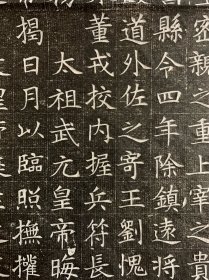 密親之重上宰之貴
縣令四年除鎮遠將
道外佐之寄王劉愧
董戎校內握兵符長
太祖武元皇帝晦
揭日月以臨照撫擢